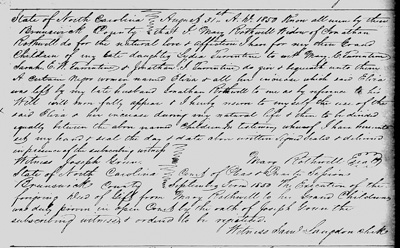 State of North Carolina August 31st A.D. 1850 Know all men by these
Brunswick County that I Mary Rothwell Widow of Jonathan
Rothwell do for the natural love & affection I have for my three Grand
Children of my late daughter to wit Mary
Sarah & Jonathan do give & bequeath unto them
A certain Negro woman named Eliza & all her increase which said Eliza
was left by my late husband Jonathan Rothwell to me as by reference to his
Will will more fully appear & I hereby reserve to myself the use of the
said Eliza & her increase during my natural life & then to be divided
equally between the above named Children In testimony whereof I have hereunto
set my hand & seal the day & date above written Signed sealed & delivered
in presence of the subscribing witness
Witness Joseph Mary Rothwell
State of North Carolina Court of Pleas & Quarter Sessions
Brunswick County September Term 1850 The Execution of the
foregoing Deed of Gift from Mary Rothwell to her Grand Children
was duly proven in open Court by the oath of Joseph the
subscribing witness & ordered to be registered.
Witness Saml Langdon Clerk